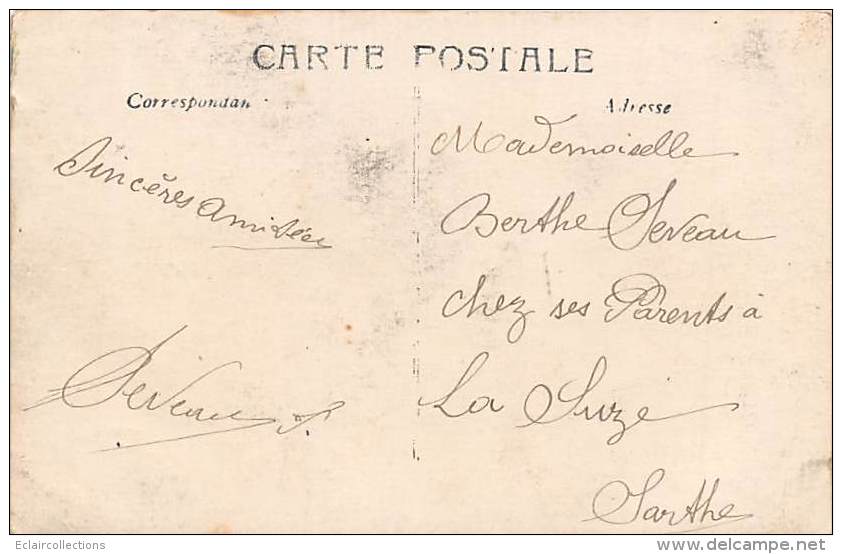 CARTE POSTALE
Correspondan
Adresse
Sincères Amitiés
Seveau S.
Mademoiselle
Berthe Seveau
chez ses Parents à
La Suze
Sarthe
Eclaircollections
www.delcampe.net